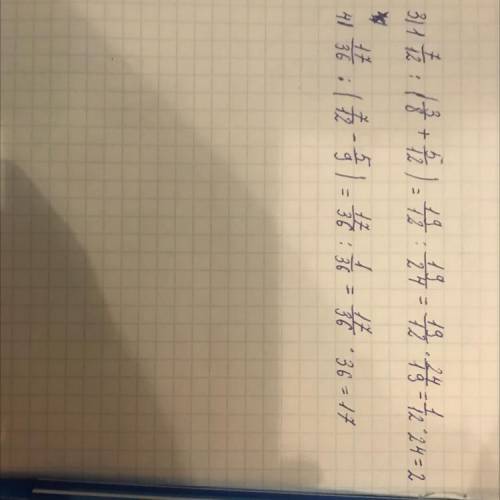 3) 1 7/12 : (3/8 + 5/12) = 19/12 : 19/24 = 19/12 · 24/19 = 1/12 · 24 = 2
4) 17/36 : (7/12 - 5/9) = 17/36 : 1/36 = 17/36 · 36 = 17